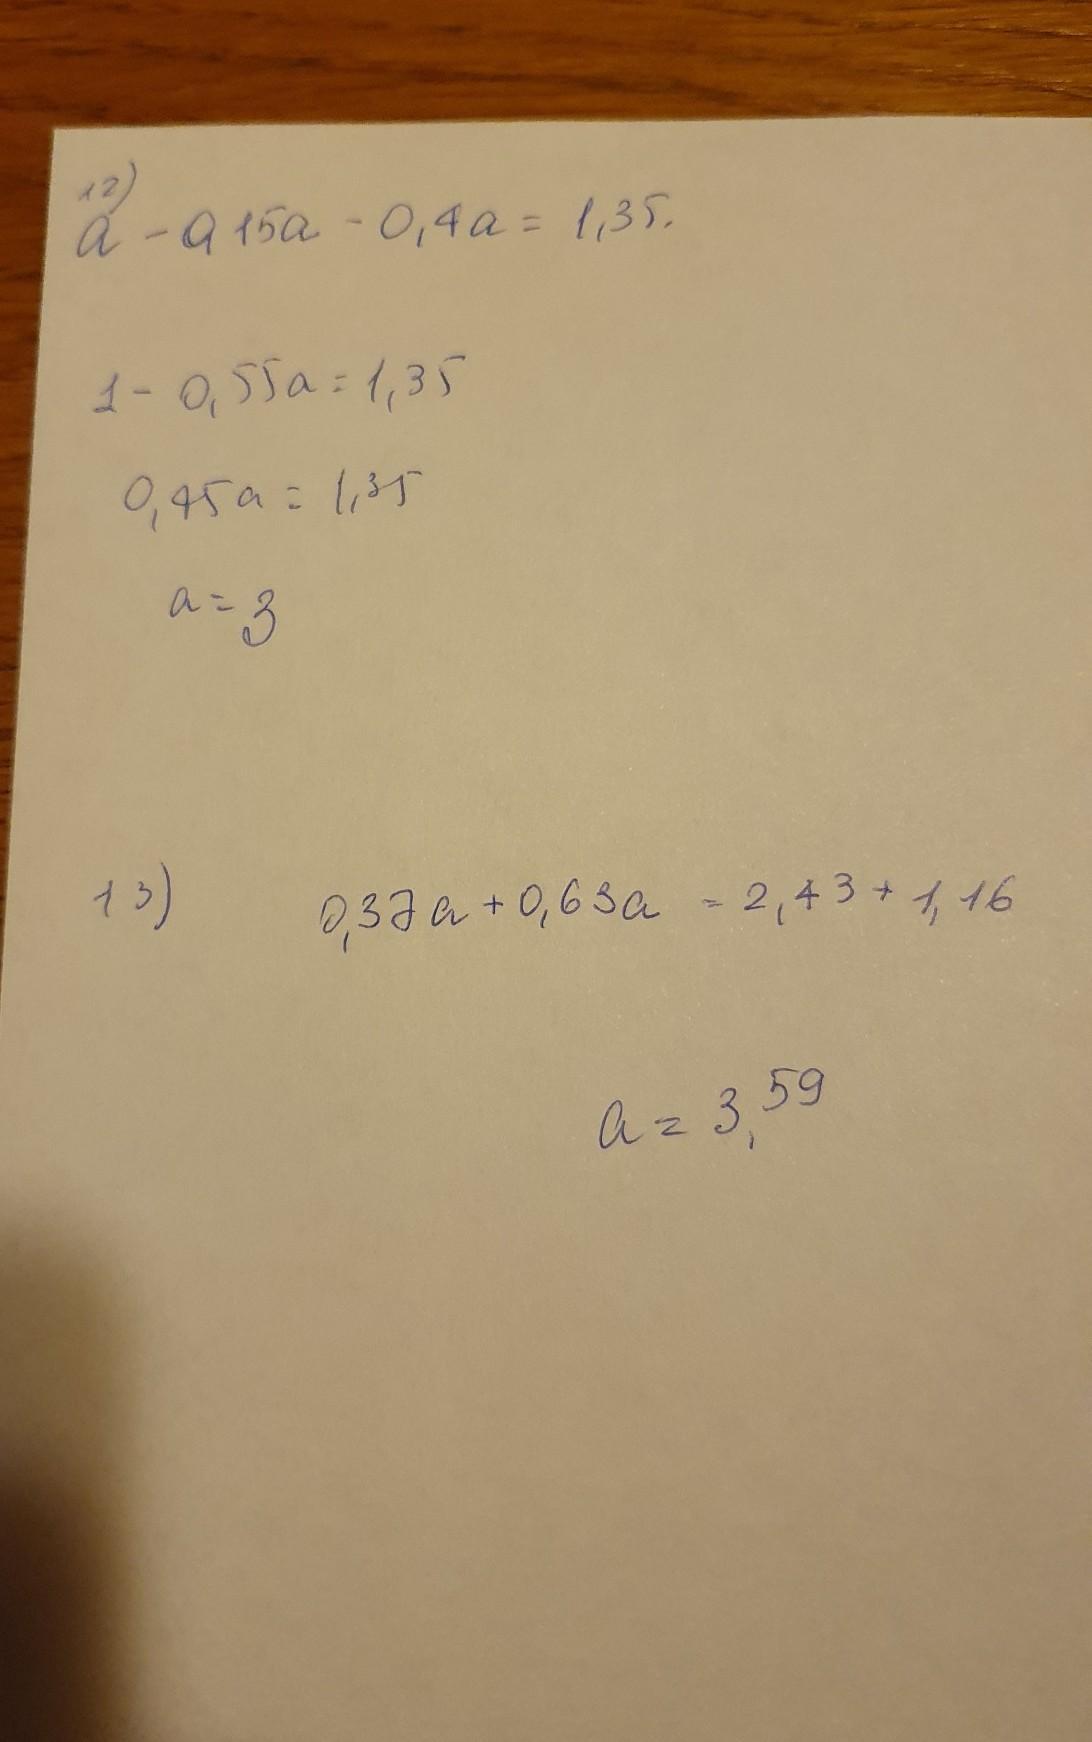 12)
a - 0,15a - 0,4a = 1,35.
1 - 0,55a = 1,35
0,45a = 1,35
a = 3
13) 0,37a + 0,63a = 2,43 + 1,16
a = 3,59